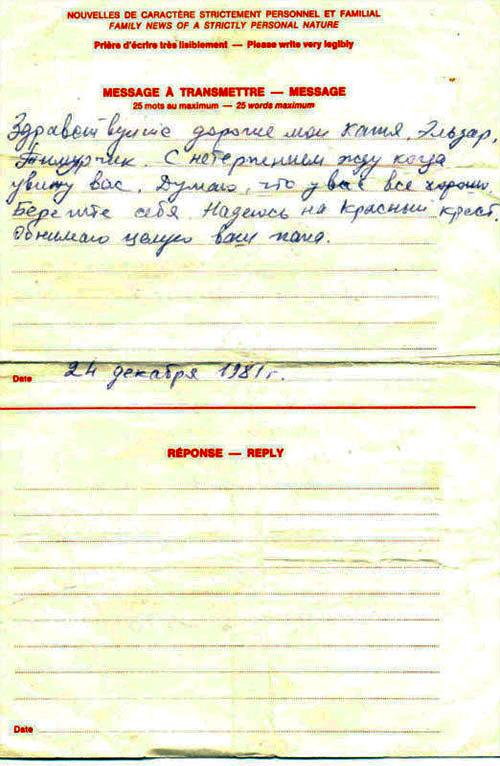 NOUVELLES DE CARACTÈRE STRICTEMENT PERSONNEL ET FAMILIAL
FAMILY NEWS OF A STRICTLY PERSONAL NATURE
Prière d'écrire très lisiblement — Please write very legibly
MESSAGE À TRANSMETTRE — MESSAGE
25 mots au maximum — 25 words maximum
Здравствуйте дорогие мои Катя, Эльдар,
Тимурчик. С нетерпением жду когда
увижу вас. Думаю, что у вас все хорошо.
Берегите себя. Надеюсь на Красный крест.
Обнимаю целую ваш папа.
Date 24 декабря 1981 г.
RÉPONSE — REPLY
Date